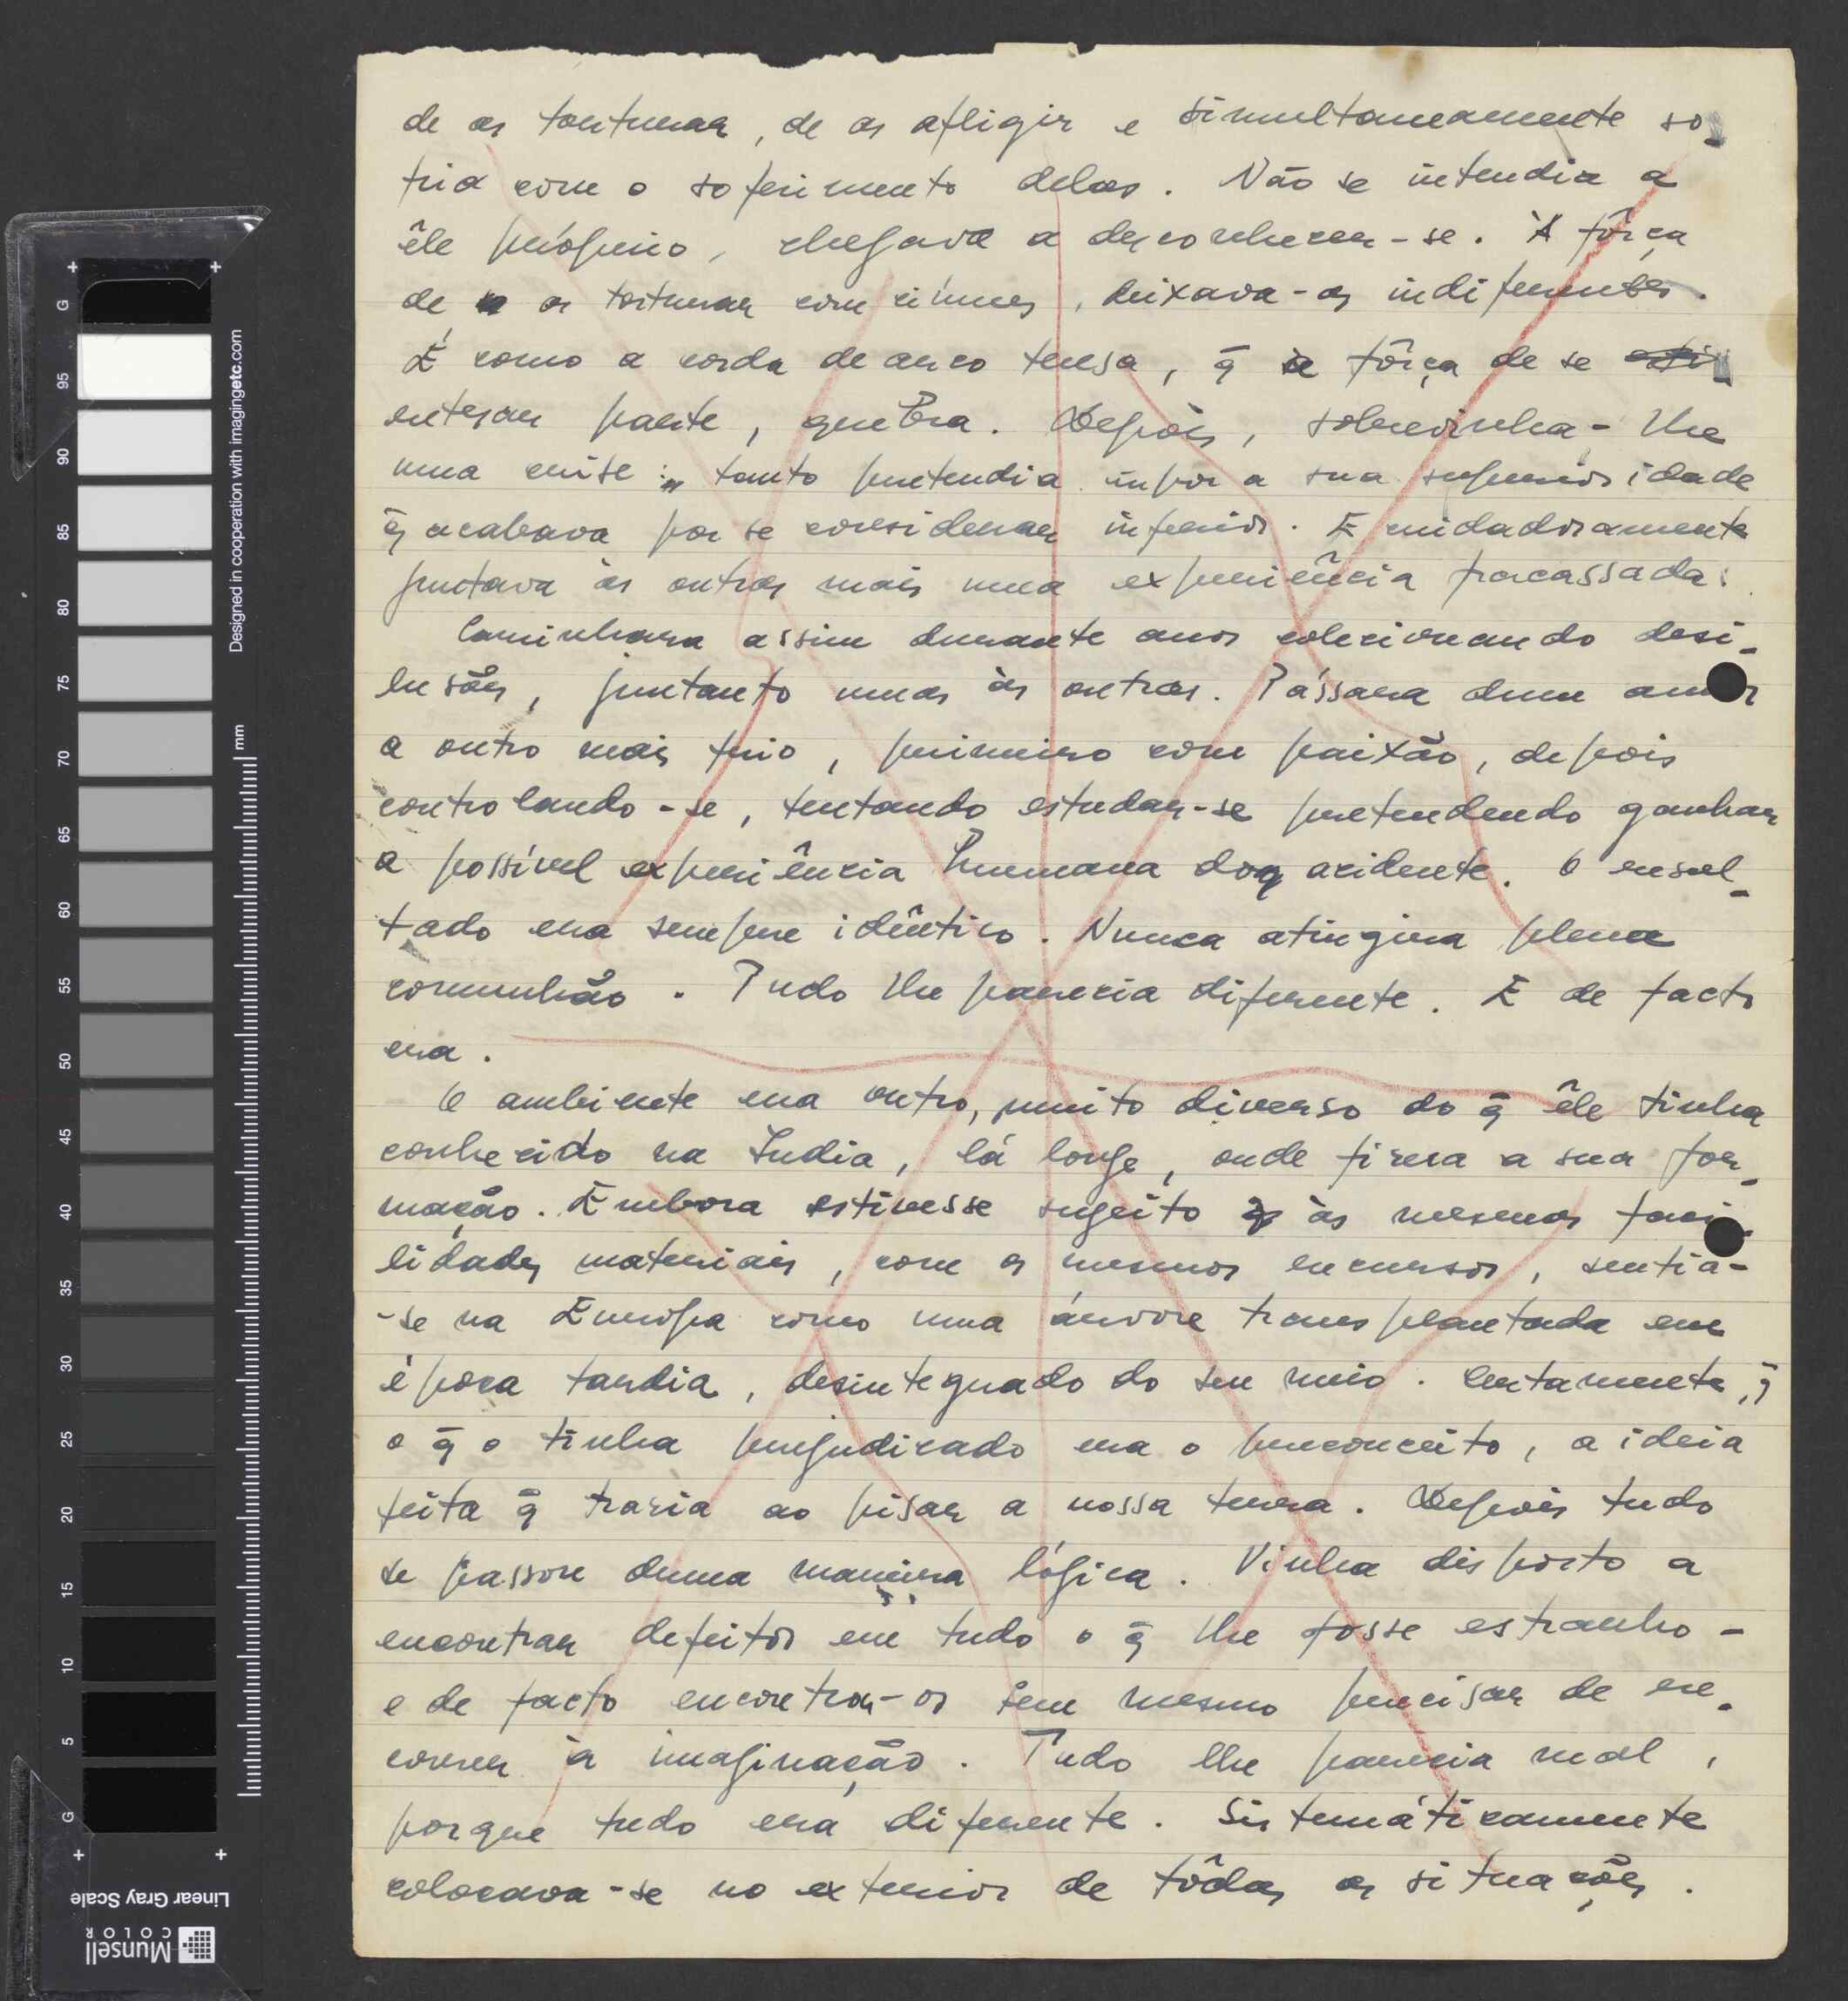 de as torturar, de as afligir e simultaneamente so-
fria com o sofrimento delas. Não se intendia a
êle próprio, chegava a desconhecer-se. À fôrça
de as torturar com ciúmes, deixava-as indiferentes.
É como a corda de arco tensa, q̄ à fôrça de se
entesar parte, quebra. Depois, sobrevinha-lhe
uma crise: tanto pretendia impor a sua superioridade
q̄ acabava por se considerar inferior. E cuidadosamente
juntava às outras mais uma experiência fracassada.
Caminhara assim durante anos colecionando desi-
lusões, juntanto umas às outras. Pássara dum amor
a outro mais frio, primeiro com paixão, depois
controlando-se, tentando estudar-se pretendendo ganhar
a possível experiência humana do acidente. O resul-
tado era sempre idêntico. Nunca atingira plena
comunhão. Tudo lhe parecia diferente. E de facto
era.
O ambiente era outro, muito diverso do q̄ êle tinha
conhecido na India, lá longe, onde fizera a sua for-
mação. Embora estivesse sugeito às mesmas faci-
lidades materiais, com os mesmos recursos, sentia-
-se na Europa como uma árvore transplantada em
época tardia, desintegrado do seu meio. Certamente, q̄
o q̄ o tinha prejudicado era o preconceito, a ideia
feita q̄ trazia ao pisar a nossa terra. Depois tudo
se passou duma maneira lógica. Vinha disposto a
encontrar defeitos em tudo o q̄ lhe fosse estranho -
e de facto encontrou-os sem mesmo precisar de re-
correr à imaginação. Tudo lhe parecia mal,
porque tudo era diferente. Sistemáticamente
colocava-se no exterior de tôdas as situações.
Designed in cooperation with imagingetc.com
mm
G
95
90
85
80
75
70
65
60
55
50
45
40
35
30
25
20
15
10
5
G
Linear Gray Scale
Munsell
COLOR